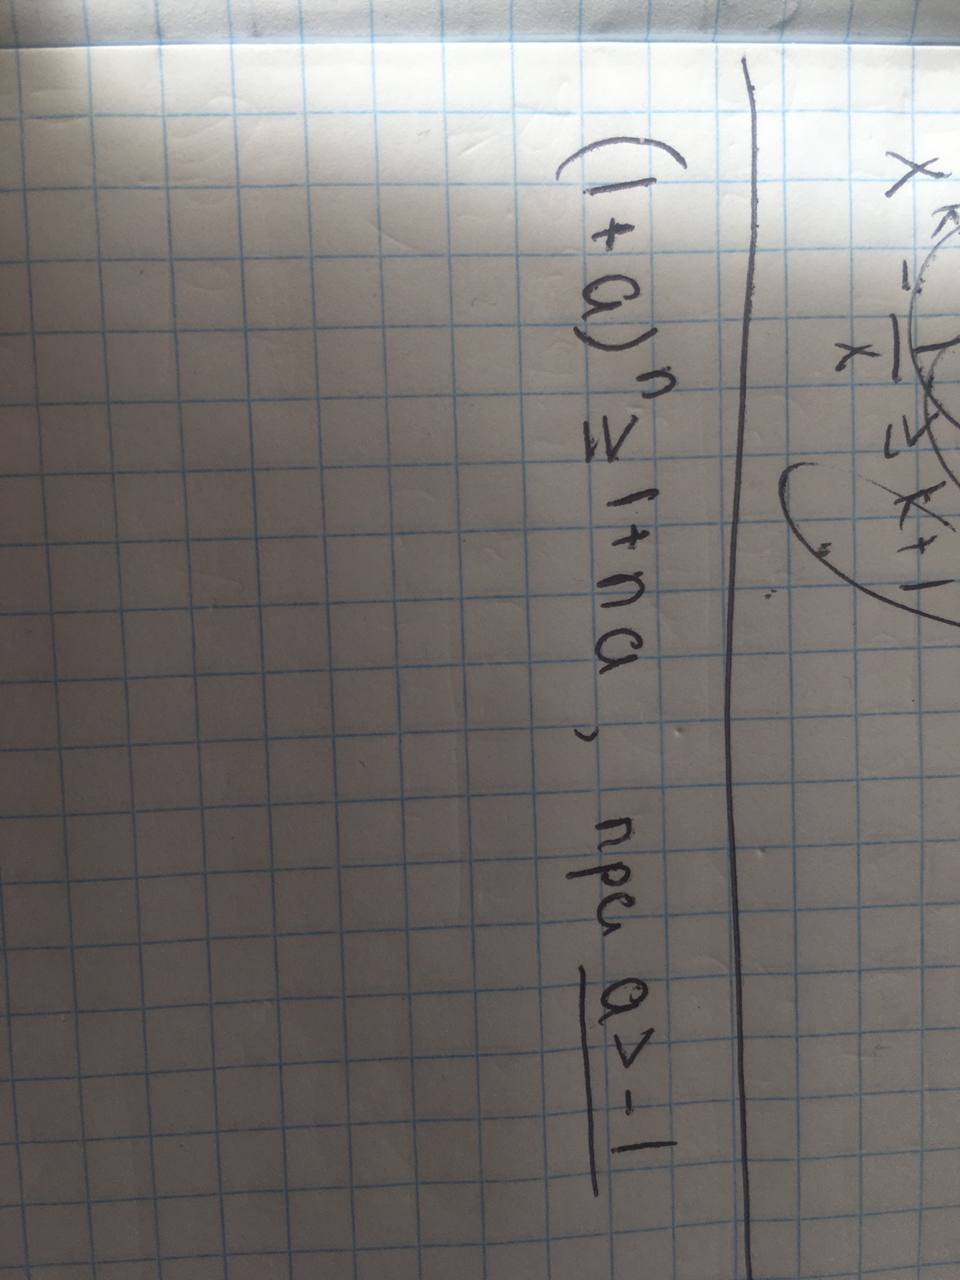 x^k - 1/x ≥ k+1
(1+a)^n ≥ 1+na , при a > -1